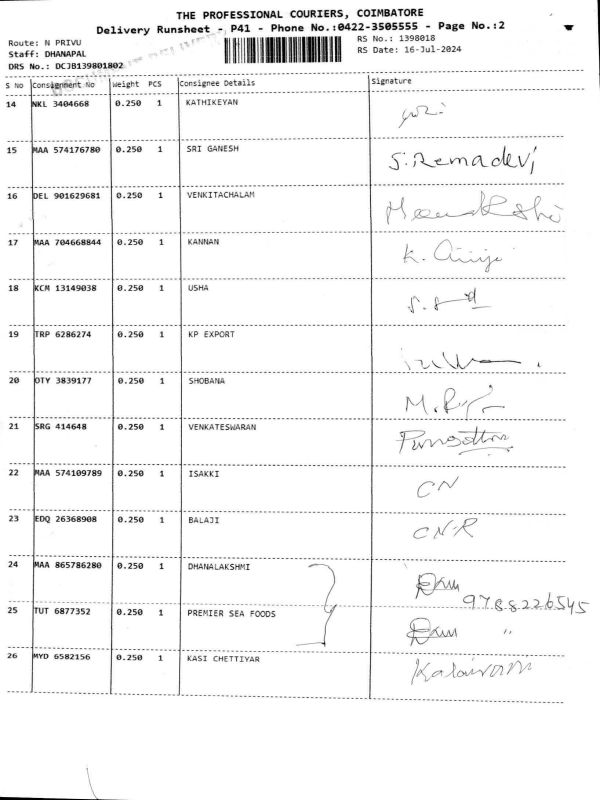 THE PROFESSIONAL COURIERS, COIMBATORE
Delivery Runsheet - P41 - Phone No.:0422-3505555 - Page No.:2
Route: N PRIVU RS No.: 1398018
Staff: DHANAPAL RS Date: 16-Jul-2024
DRS No.: DCJB139801802
S No Consignment No Weight PCS Consignee Details Signature
14 NKL 3404668 0.250 1 KATHIKEYAN
15 MAA 574176780 0.250 1 SRI GANESH S. Remadevi
16 DEL 901629681 0.250 1 VENKITACHALAM
17 MAA 704668844 0.250 1 KANNAN K.
18 KCM 13149038 0.250 1 USHA
19 TRP 6286274 0.250 1 KP EXPORT
20 OTY 3839177 0.250 1 SHOBANA
21 SRG 414648 0.250 1 VENKATESWARAN
22 MAA 574109789 0.250 1 ISAKKI CN
23 EDQ 26368908 0.250 1 BALAJI CN.R
24 MAA 865786280 0.250 1 DHANALAKSHMI
9788226545
25 TUT 6877352 0.250 1 PREMIER SEA FOODS "
26 MYD 6582156 0.250 1 KASI CHETTIYAR